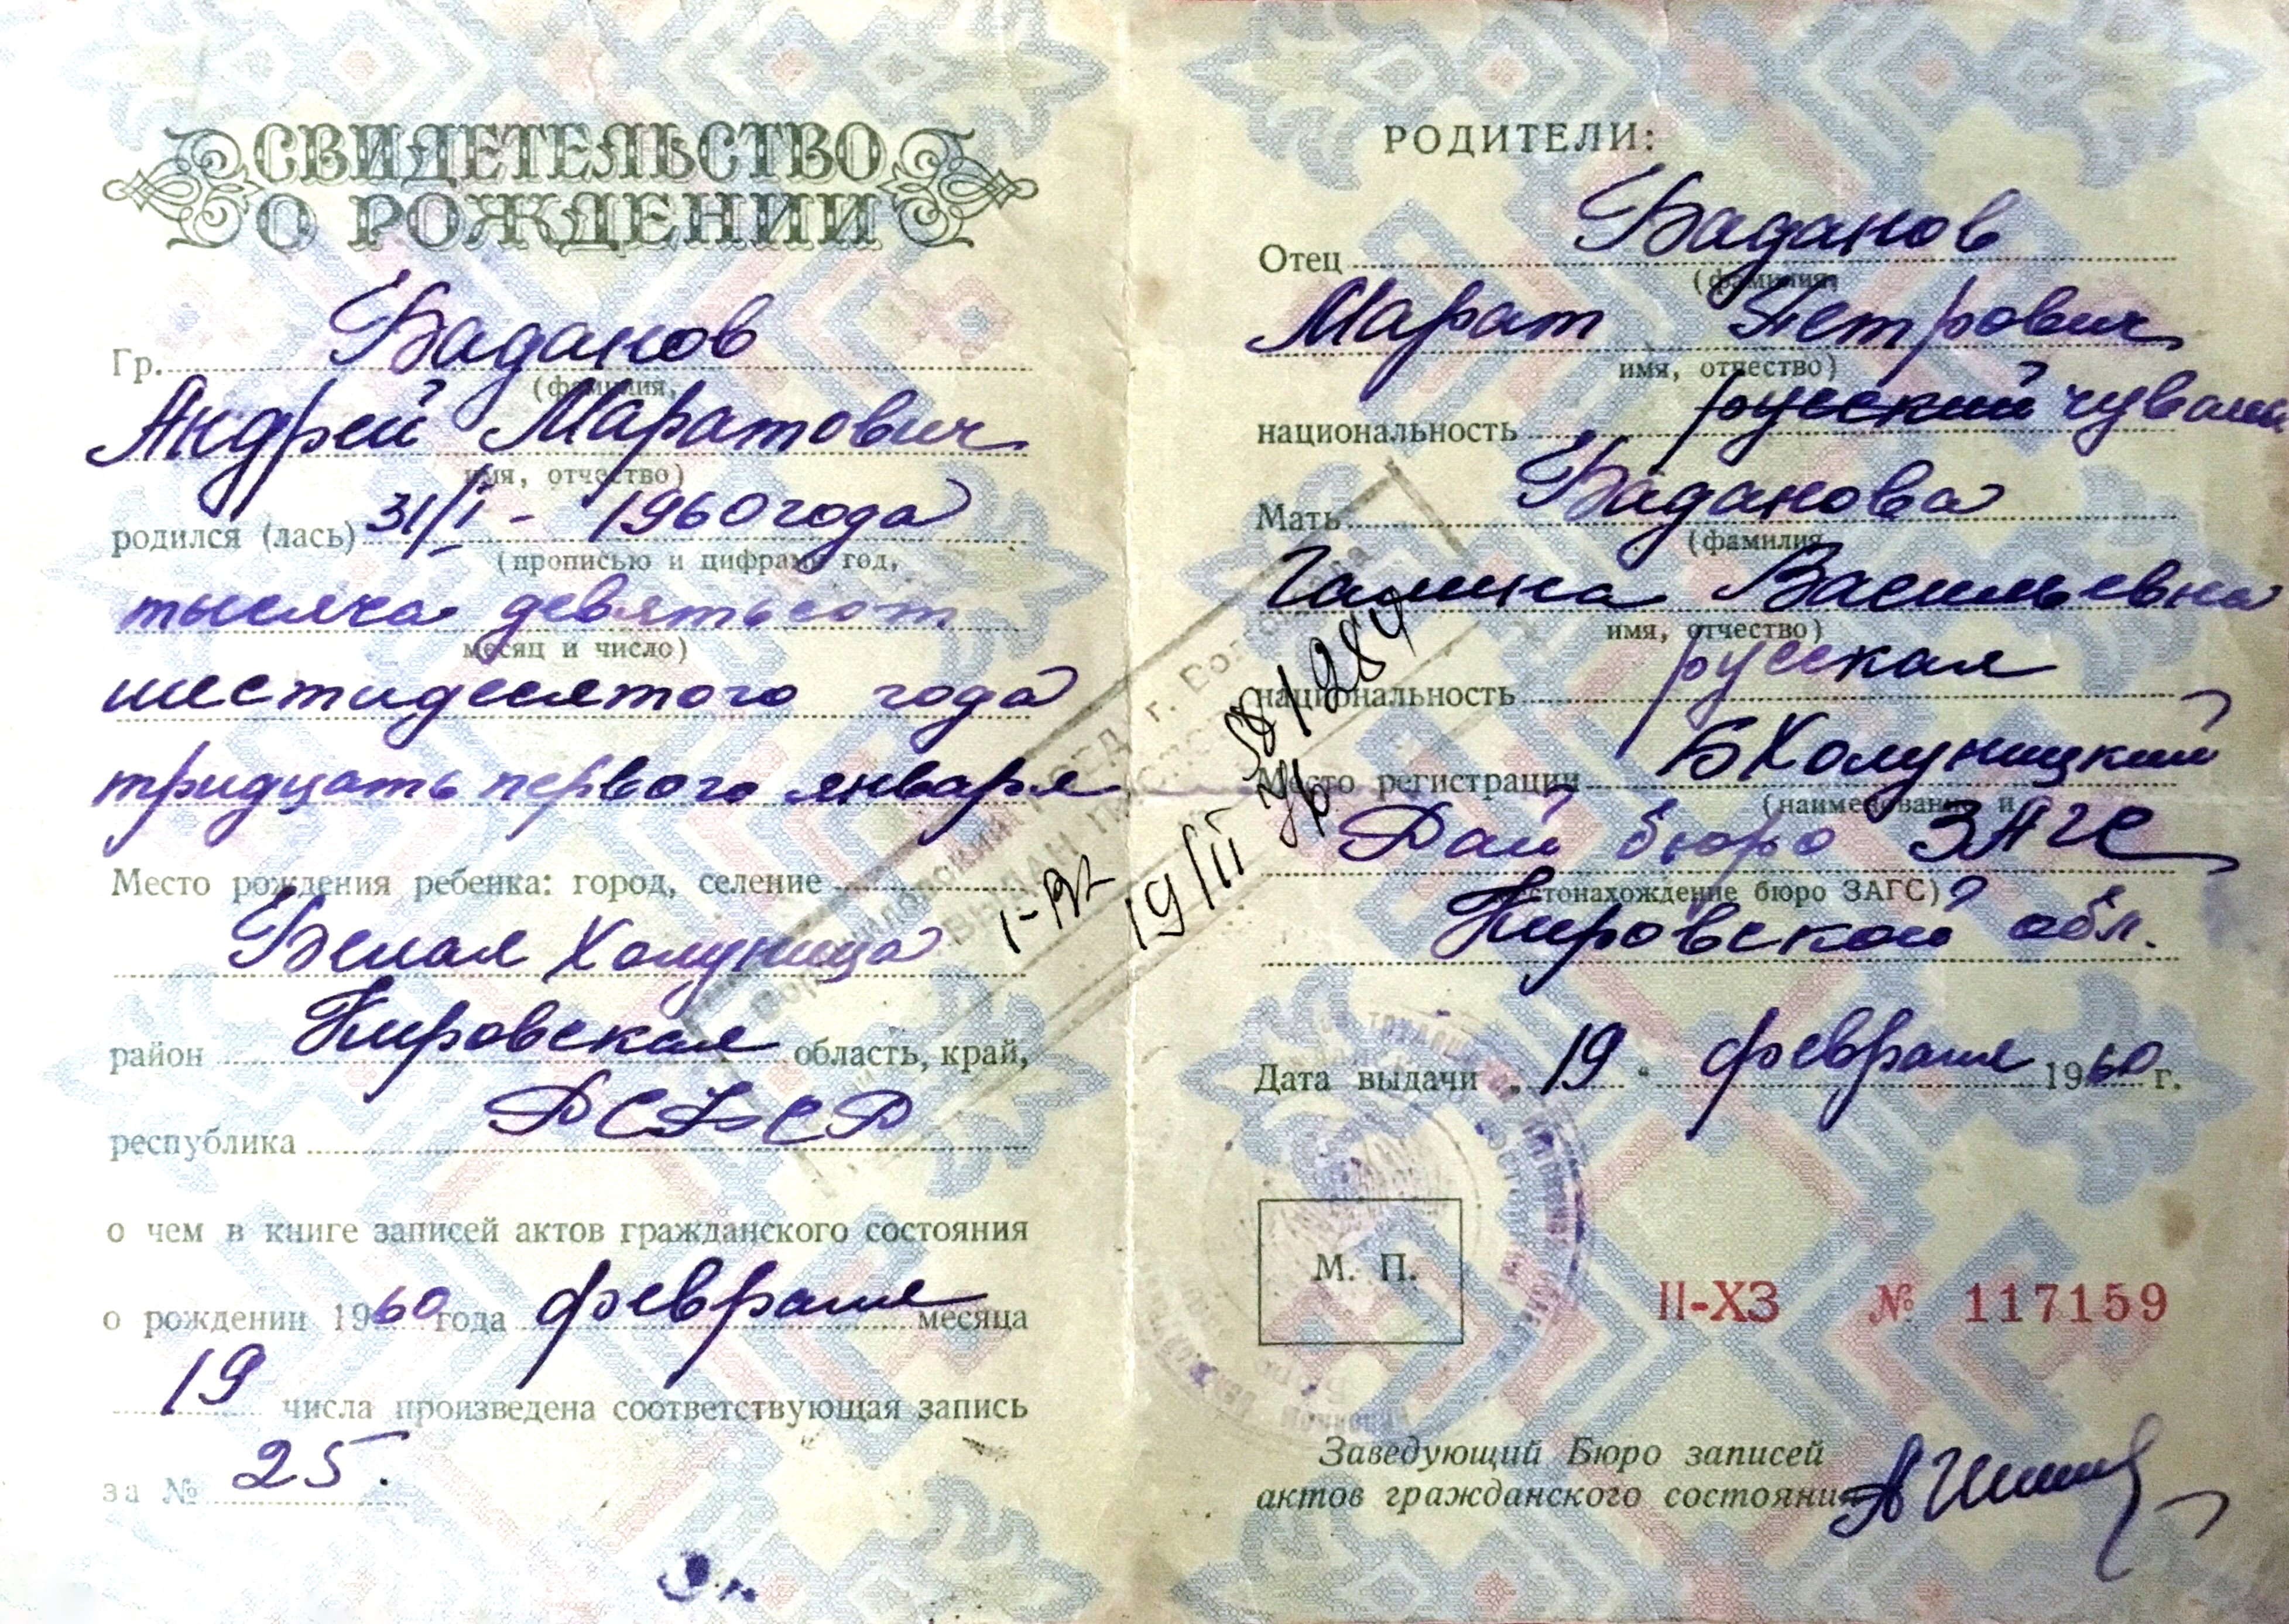 СВИДЕТЕЛЬСТВО
О РОЖДЕНИИ
Гр. Баданов
(фамилия,
Андрей Маратович
имя, отчество)
родился (лась) 31/I - 1960 года
(прописью и цифрами год,
тысяча девятьсот
месяц и число)
шестидесятого года
тридцать первого января
Место рождения ребенка: город, селение
Белая Холуница
район Кировская область, край,
республика РСФСР
о чем в книге записей актов гражданского состояния
о рождении 1960 года февраля месяца
19 числа произведена соответствующая запись
за № 25.
РОДИТЕЛИ:
Отец Баданов
(фамилия,
Марат Петрович
имя, отчество)
национальность русский чуваш
Мать Баданова
(фамилия,
Галина Васильевна
имя, отчество)
национальность русская
Место регистрации БХолуницкий
(наименование и
Рай бюро ЗАГС
местонахождение бюро ЗАГС)
Кировской обл.
Дата выдачи „19“ февраля 1960 г.
М. П.
II-ХЗ № 117159
Заведующий Бюро записей
актов гражданского состояния
ВЫДАН
19/II